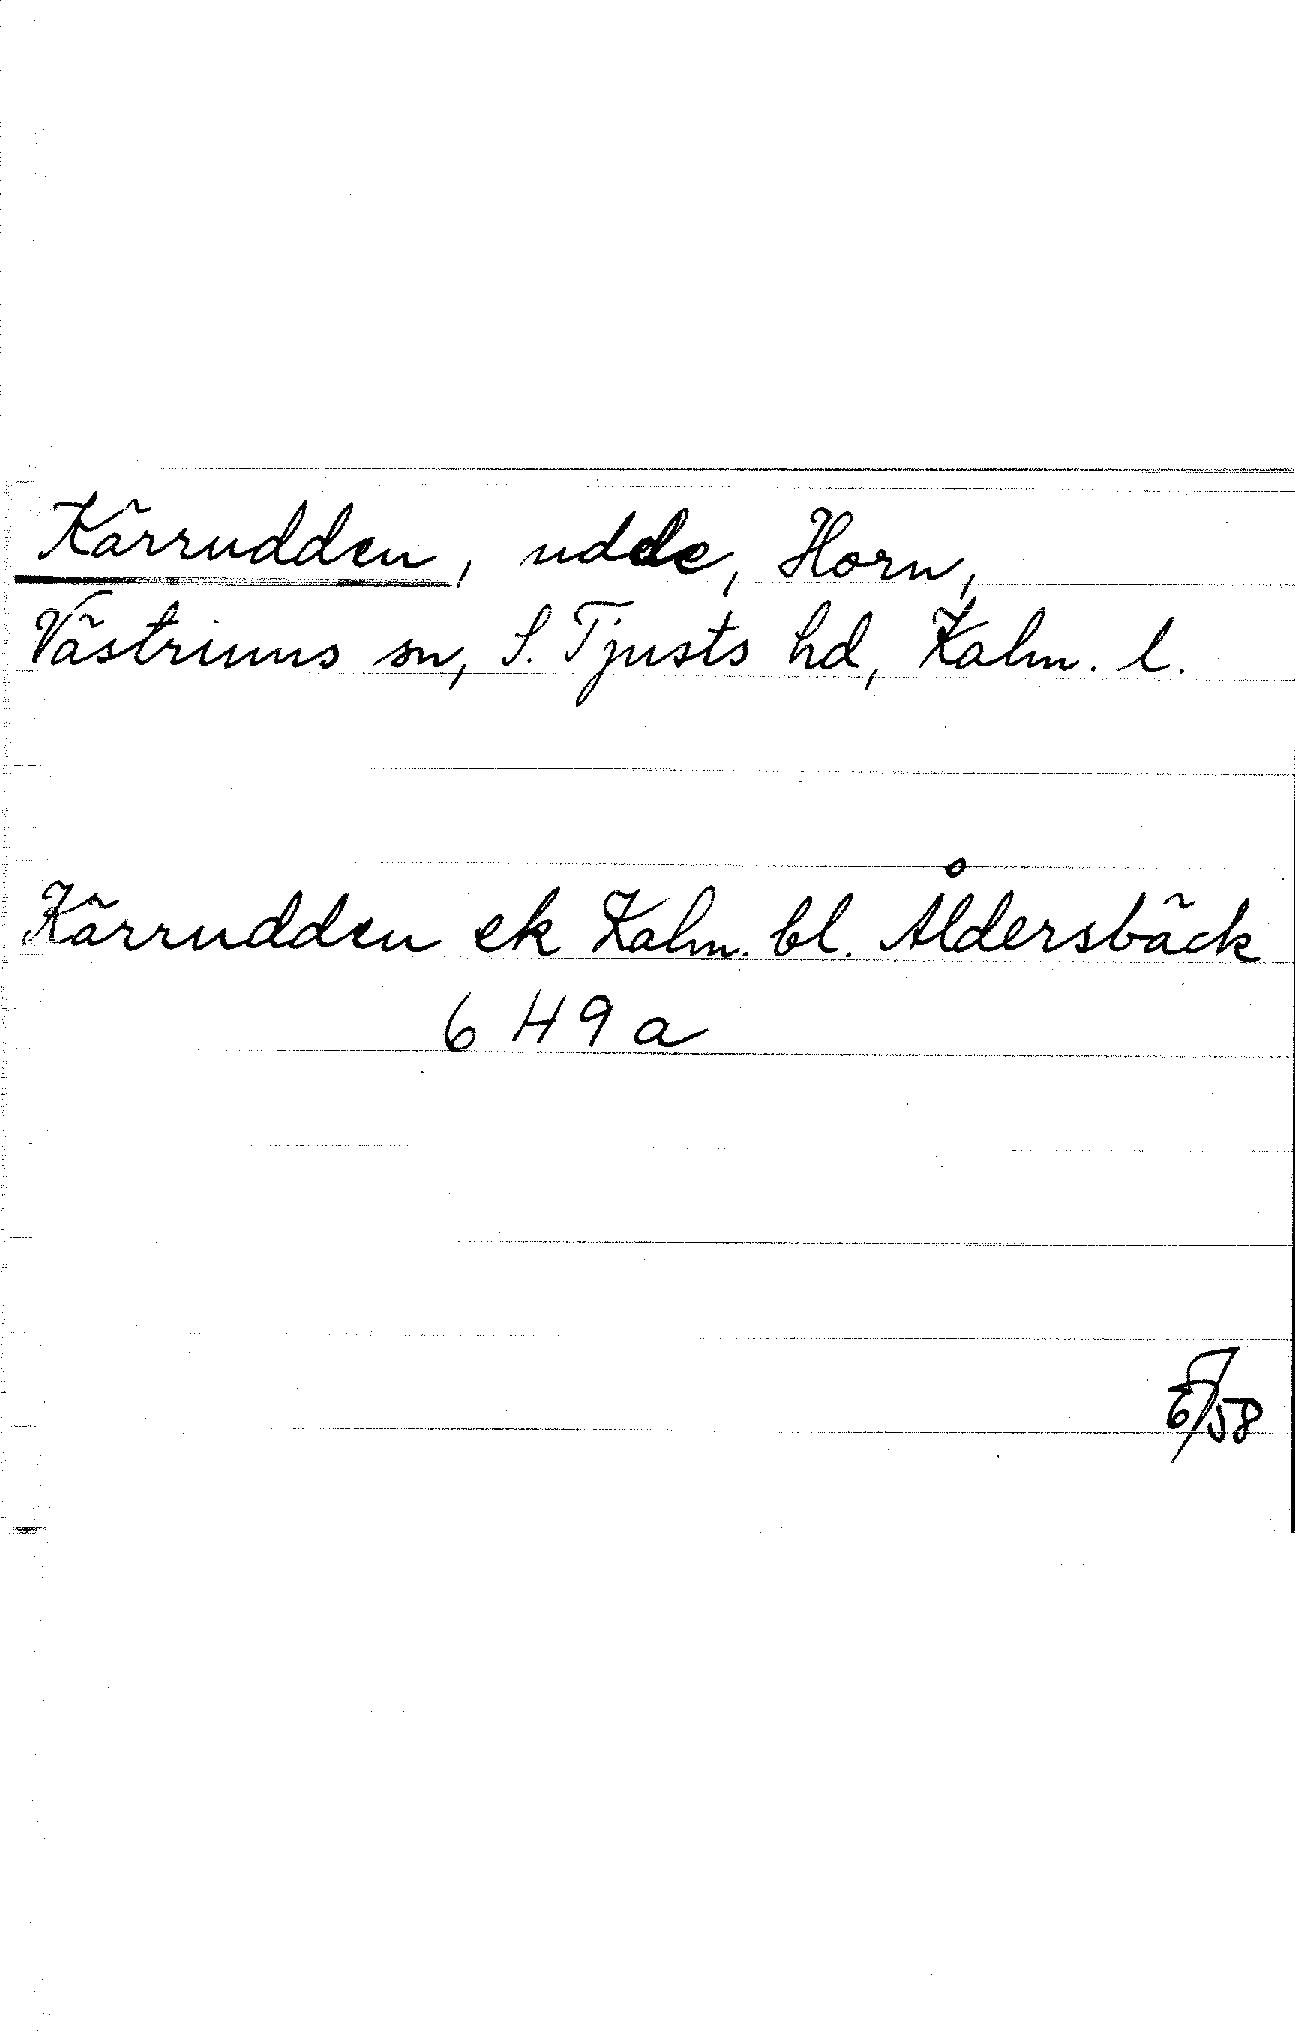 Kärrudden, udde, Horn,
Västrums sn, S. Tjusts hd, Kalm. l.
Kärrudden ek Kalm. bl. Åldersbäck
6 H 9 a
/58